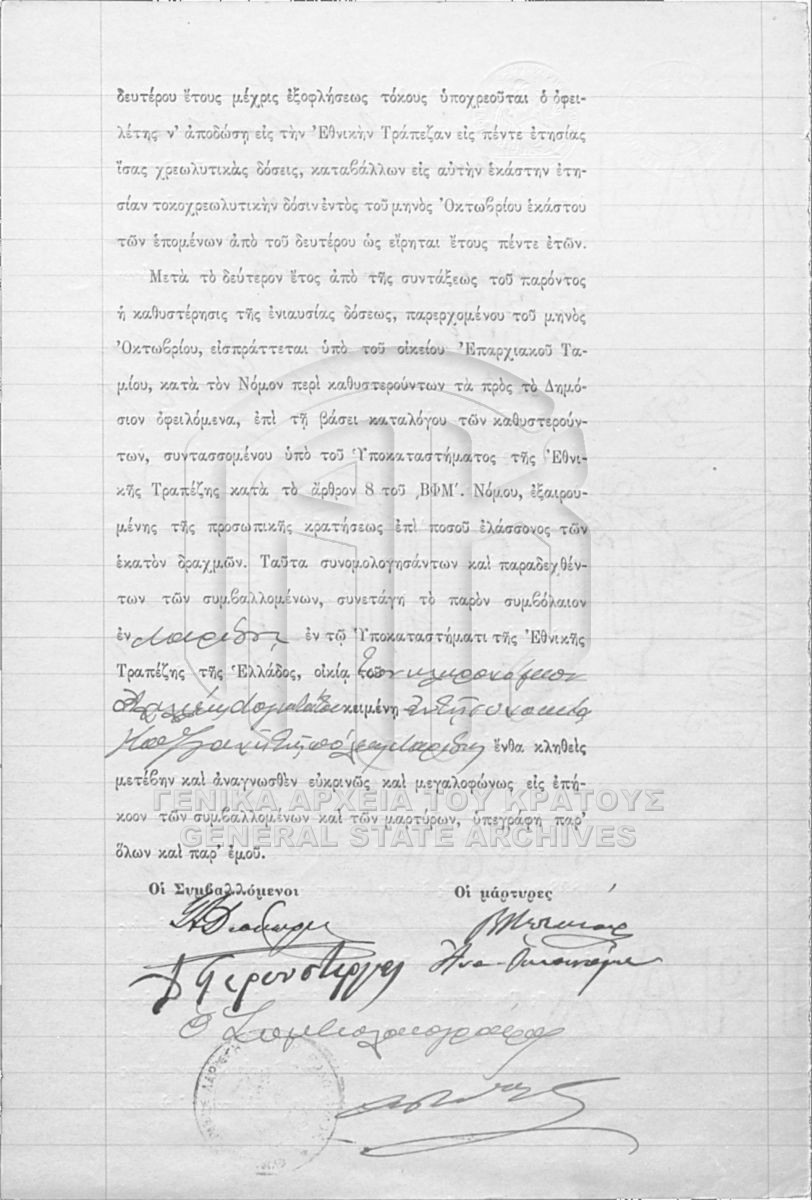 δευτέρου ἔτους μέχρις ἐξοφλήσεως τόκους ὑποχρεοῦται ὁ ὀφει-
λέτης ν' ἀποδώσῃ εἰς τὴν Ἐθνικὴν Τράπεζαν εἰς πέντε ἐτησίας
ἴσας χρεωλυτικὰς δόσεις, καταβάλλων εἰς αὐτὴν ἑκάστην ἐτη-
σίαν τοκοχρεωλυτικὴν δόσιν ἐντὸς τοῦ μηνὸς Ὀκτωβρίου ἑκάστου
τῶν ἑπομένων ἀπὸ τοῦ δευτέρου ὡς εἴρηται ἔτους πέντε ἐτῶν.
Μετὰ τὸ δεύτερον ἔτος ἀπὸ τῆς συντάξεως τοῦ παρόντος
ἡ καθυστέρησις τῆς ἐνιαυσίας δόσεως, παρερχομένου τοῦ μηνὸς
Ὀκτωβρίου, εἰσπράττεται ὑπὸ τοῦ οἰκείου Ἐπαρχιακοῦ Τα-
μίου, κατὰ τὸν Νόμον περὶ καθυστερούντων τὰ πρὸς τὸ Δημό-
σιον ὀφειλόμενα, ἐπὶ τῇ βάσει καταλόγου τῶν καθυστερούν-
των, συντασσομένου ὑπὸ τοῦ Ὑποκαταστήματος τῆς Ἐθνι-
κῆς Τραπέζης κατὰ τὸ ἄρθρον 8 τοῦ ͵ΒΦΜ΄. Νόμου, ἐξαιρου-
μένης τῆς προσωπικῆς κρατήσεως ἐπὶ ποσοῦ ἐλάσσονος τῶν
ἑκατὸν δραχμῶν. Ταῦτα συνομολογησάντων καὶ παραδεχθέν-
των τῶν συμβαλλομένων, συνετάγη τὸ παρὸν συμβόλαιον
ἐν Λαρίσῃ ἐν τῷ Ὑποκαταστήματι τῆς Ἐθνικῆς
Τραπέζης τῆς Ἑλλάδος, οἰκίᾳ τῶν κληρονόμων
κειμένῃ συνοικίᾳ
τῆς πόλεως Λαρίσης ἔνθα κληθεὶς
μετέβην καὶ ἀναγνωσθὲν εὐκρινῶς καὶ μεγαλοφώνως εἰς ἐπή-
κοον τῶν συμβαλλομένων καὶ τῶν μαρτύρων, ὑπεγράφη παρ'
ὅλων καὶ παρ' ἐμοῦ.
ΓΕΝΙΚΑ ΑΡΧΕΙΑ ΤΟΥ ΚΡΑΤΟΥΣ
GENERAL STATE ARCHIVES
Οἱ Συμβαλλόμενοι Οἱ μάρτυρες
Ὁ Συμβολαιογράφος